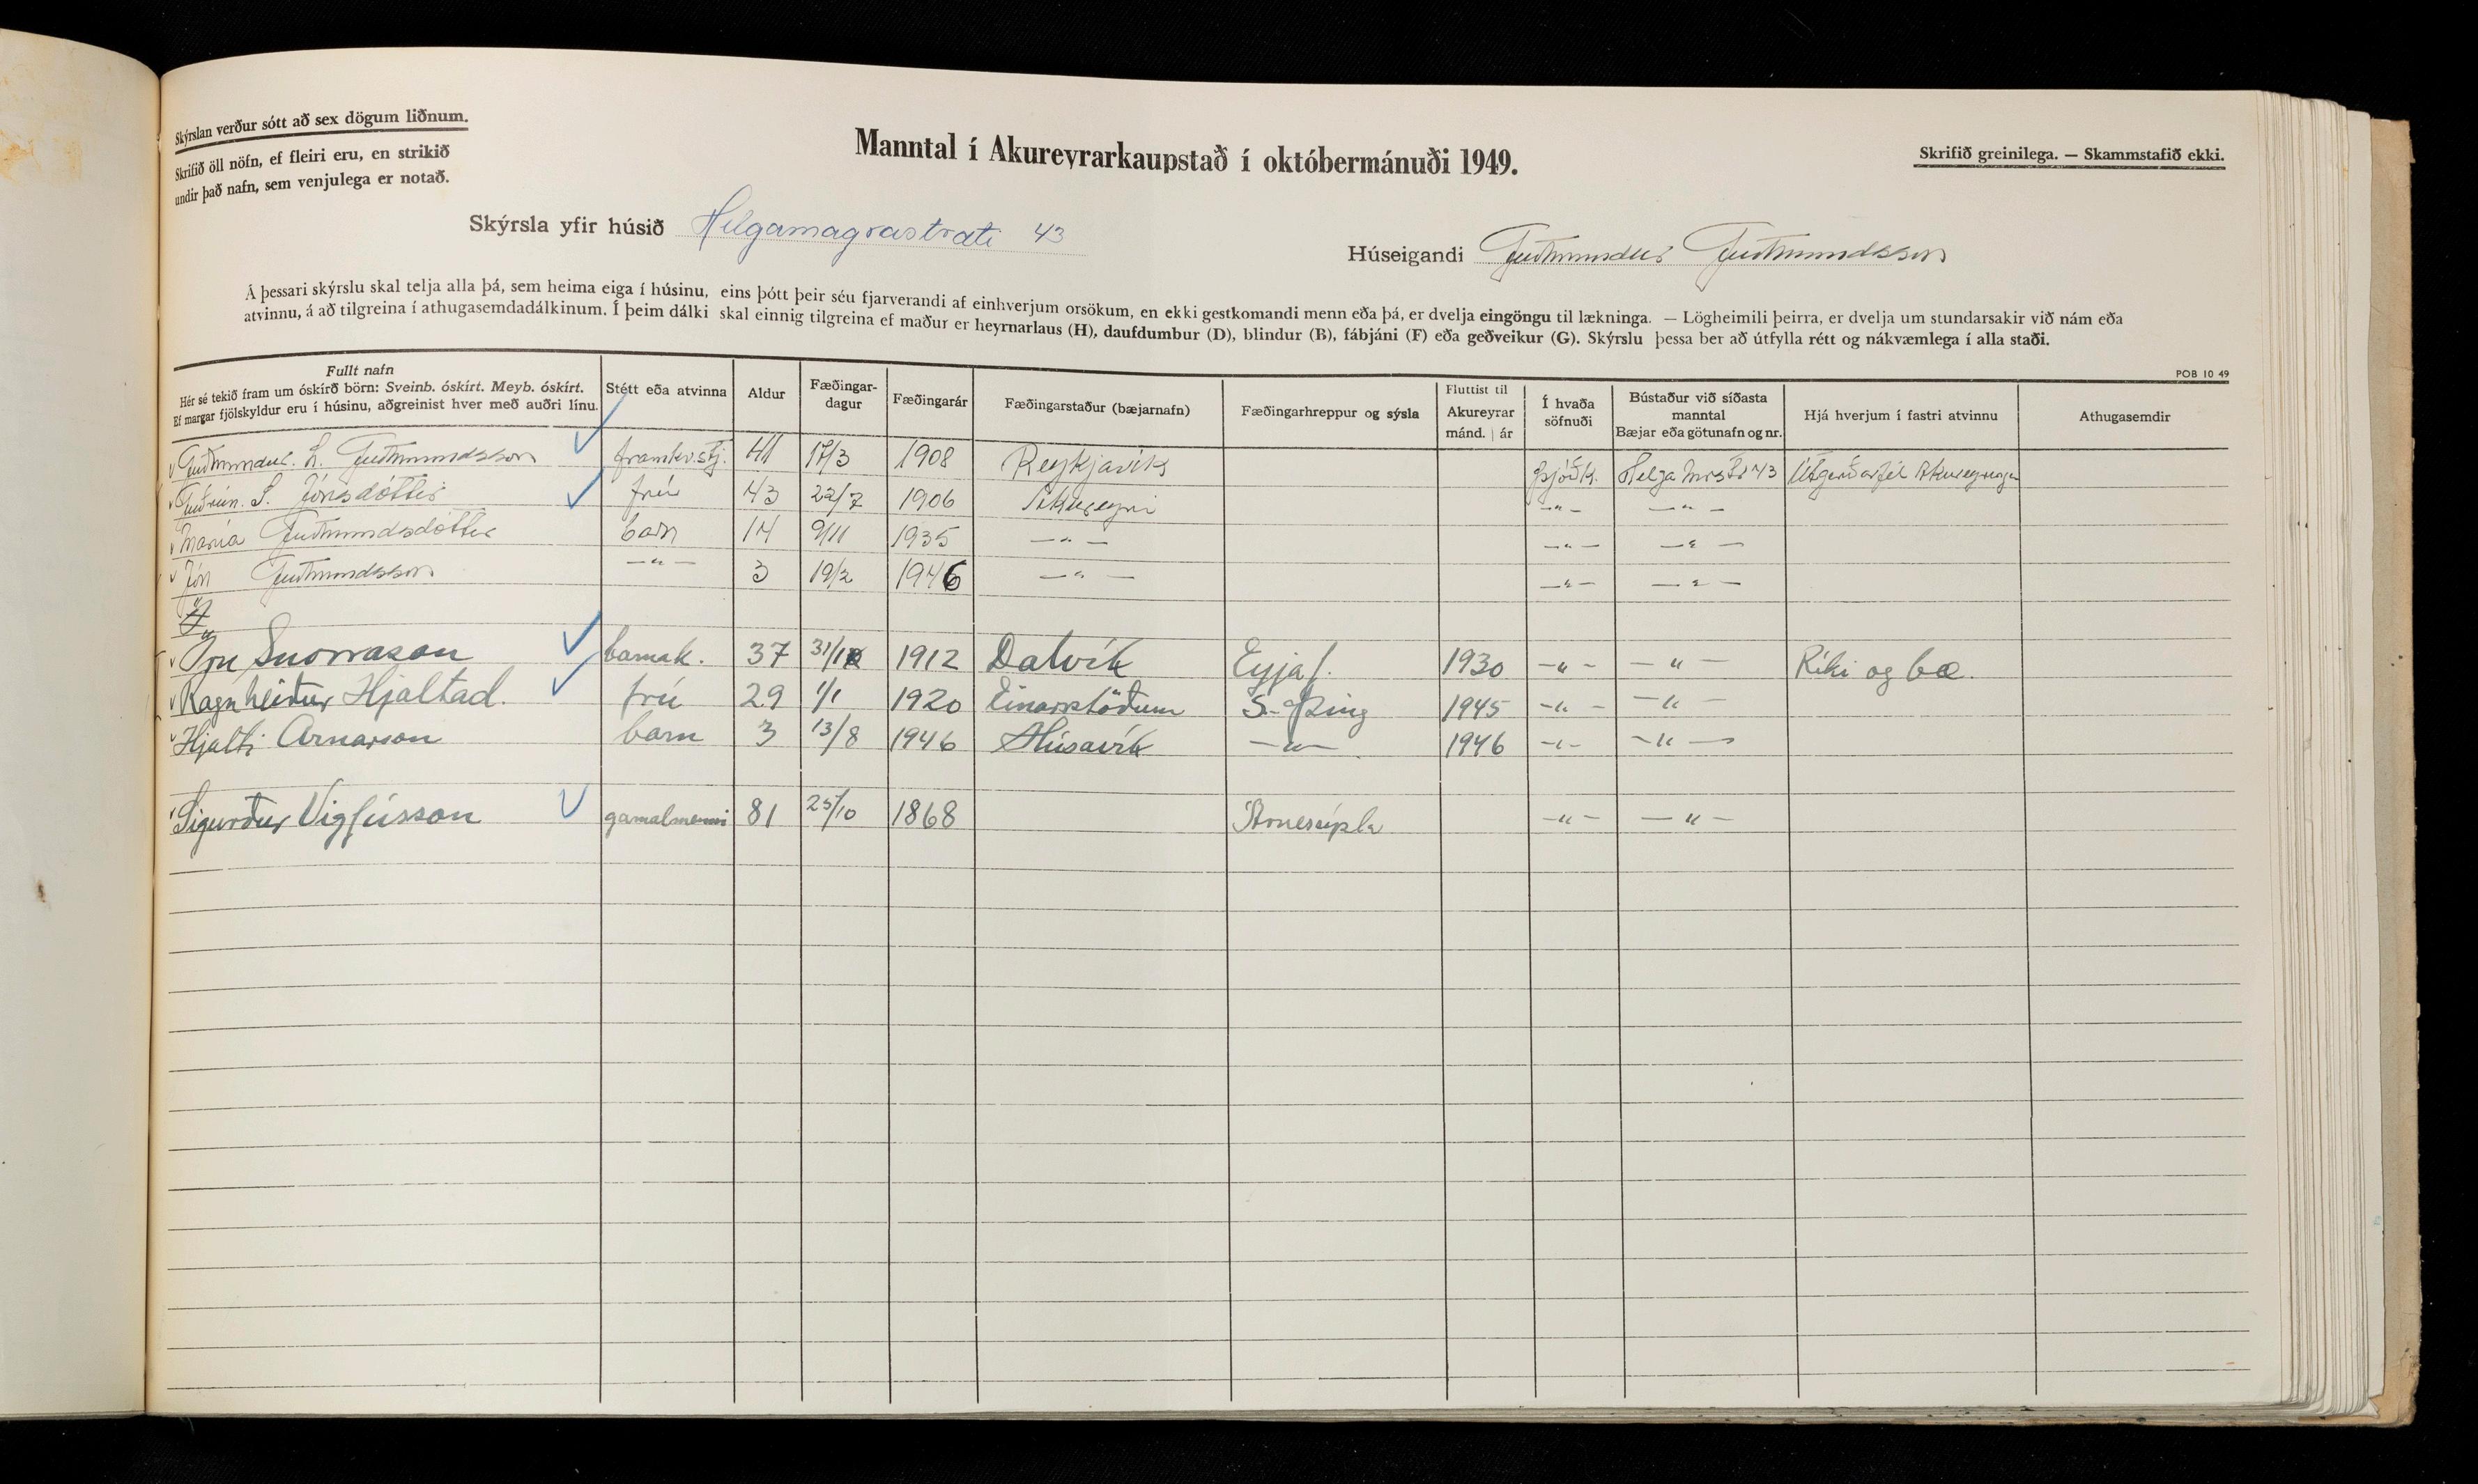 Skýrslan verður sótt að sex dögum liðnum.
Skrifið öll nöfn, ef fleiri eru, en strikið
undir það nafn, sem venjulega er notað.
Manntal í Akureyrarkaupstað í októbermánuði 1949.
Skrifið greinilega. — Skammstafið ekki.
Skýrsla yfir húsið Helgamagrastræti 43
Húseigandi Guðmundur Guðmundsson
Á þessari skýrslu skal telja alla þá, sem heima eiga í húsinu, eins þótt þeir séu fjarverandi af einhverjum orsökum, en ekki gestkomandi menn eða þá, er dvelja eingöngu til lækninga. — Lögheimili þeirra, er dvelja um stundarsakir við nám eða
atvinnu, á að tilgreina í athugasemdadálkinum. Í þeim dálki skal einnig tilgreina ef maður er heyrnarlaus (H), daufdumbur (D), blindur (B), fábjáni (F) eða geðveikur (G). Skýrslu þessa ber að útfylla rétt og nákvæmlega í alla staði.
POB 10 49
Fullt nafn
Hér sé tekið fram um óskírð börn: Sveinb. óskírt. Meyb. óskírt.
Ef margar fjölskyldur eru í húsinu, aðgreinist hver með auðri línu.
Stétt eða atvinna
Aldur
Fæðingar-
dagur
Fæðingarár
Fæðingarstaður (bæjarnafn)
Fæðingarhreppur og sýsla
Fluttist til
Akureyrar
mánd. | ár
Í hvaða
söfnuði
Bústaður við síðasta
manntal
Bæjar eða götunafn og nr.
Hjá hverjum í fastri atvinnu
Athugasemdir
Guðmundur. K. Guðmundsson framkv.stj. 41 17/3 1908 Reykjavík þjóðk. Helga Mrstr 43 Útgerðarfél Akureyringa
Guðrún. S. Jónsdóttir frú 43 22/7 1906 Akureyri —"— —"—
María Guðmundsdóttir barn 14 9/11 1935 —"— —"— —"—
Jón Guðmundsson —"— 3 19/2 1946 —"— —"— —"—
Örn Snorrason barnak. 37 31/1 1912 Dalvík Eyjaf. 1930 —"— —"— Ríki og bæ.
Ragnheiður Hjaltad. frú 29 1/1 1920 Einarsstöðum S-Þing 1945 —"— —"—
Hjalti Arnarson barn 3 13/8 1946 Húsavík —"— 1946 —"— —"—
Sigurður Vigfússon gamalmenni 81 25/10 1868 Árnessýsla —"— —"—